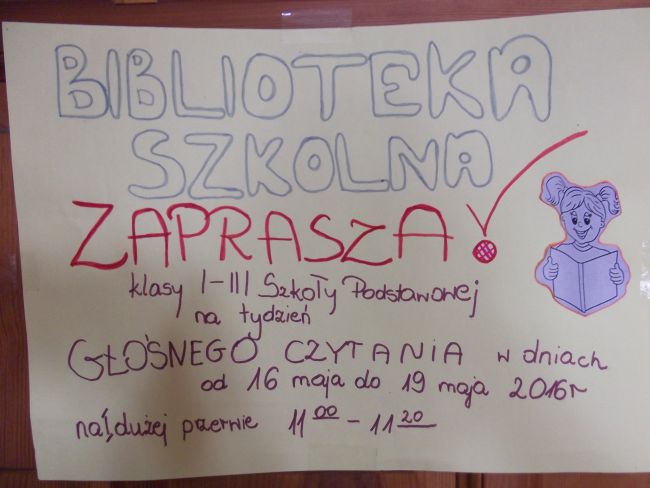 BIBLIOTEKA
SZKOLNA
ZAPRASZA!
klasy I-III Szkoły Podstawowej
na tydzień
GŁOŚNEGO CZYTANIA w dniach
od 16 maja do 19 maja 2016r
na dużej przerwie 11 00 - 11 20